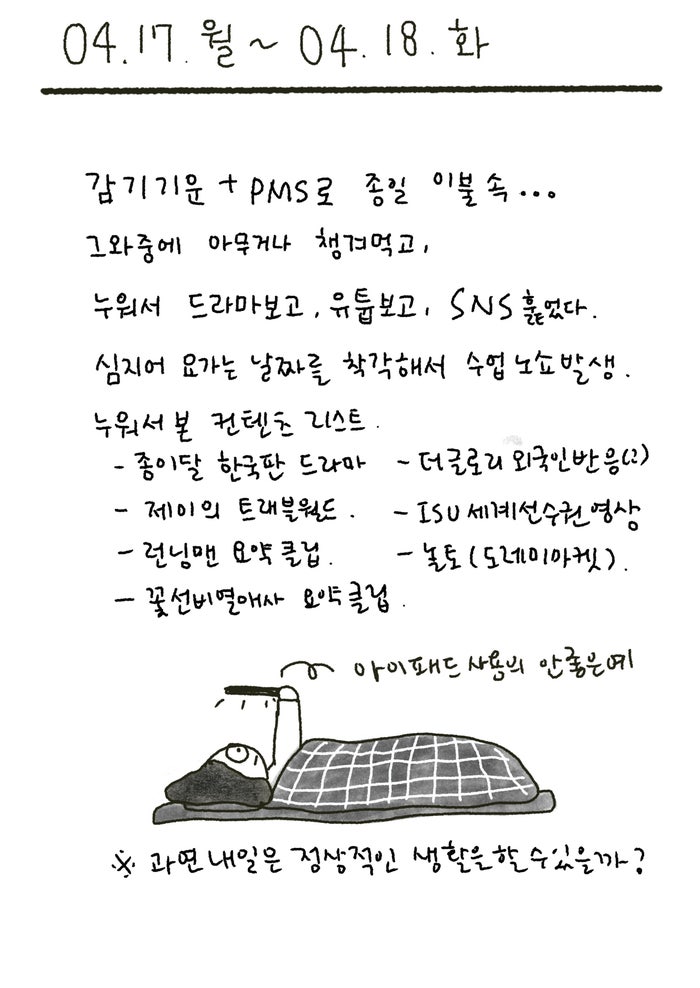 04.17.월 ~ 04.18.화
감기기운 + PMS로 종일 이불 속...
그와중에 아무거나 챙겨먹고,
누워서 드라마보고, 유튭보고, SNS 훑었다.
심지어 요가는 날짜를 착각해서 수업 노쇼발생.
누워서 본 컨텐츠 리스트.
- 종이달 한국판 드라마
- 제이의 트래블월드.
- 런닝맨 요약클립.
- 꽃선비열애사 요약클립.
- 더글로리 외국인반응(2)
- ISU 세계선수권영상
- 놀토(도레미마켓).
아이패드 사용의 안좋은예
※ 과연 내일은 정상적인 생활을 할 수 있을까?